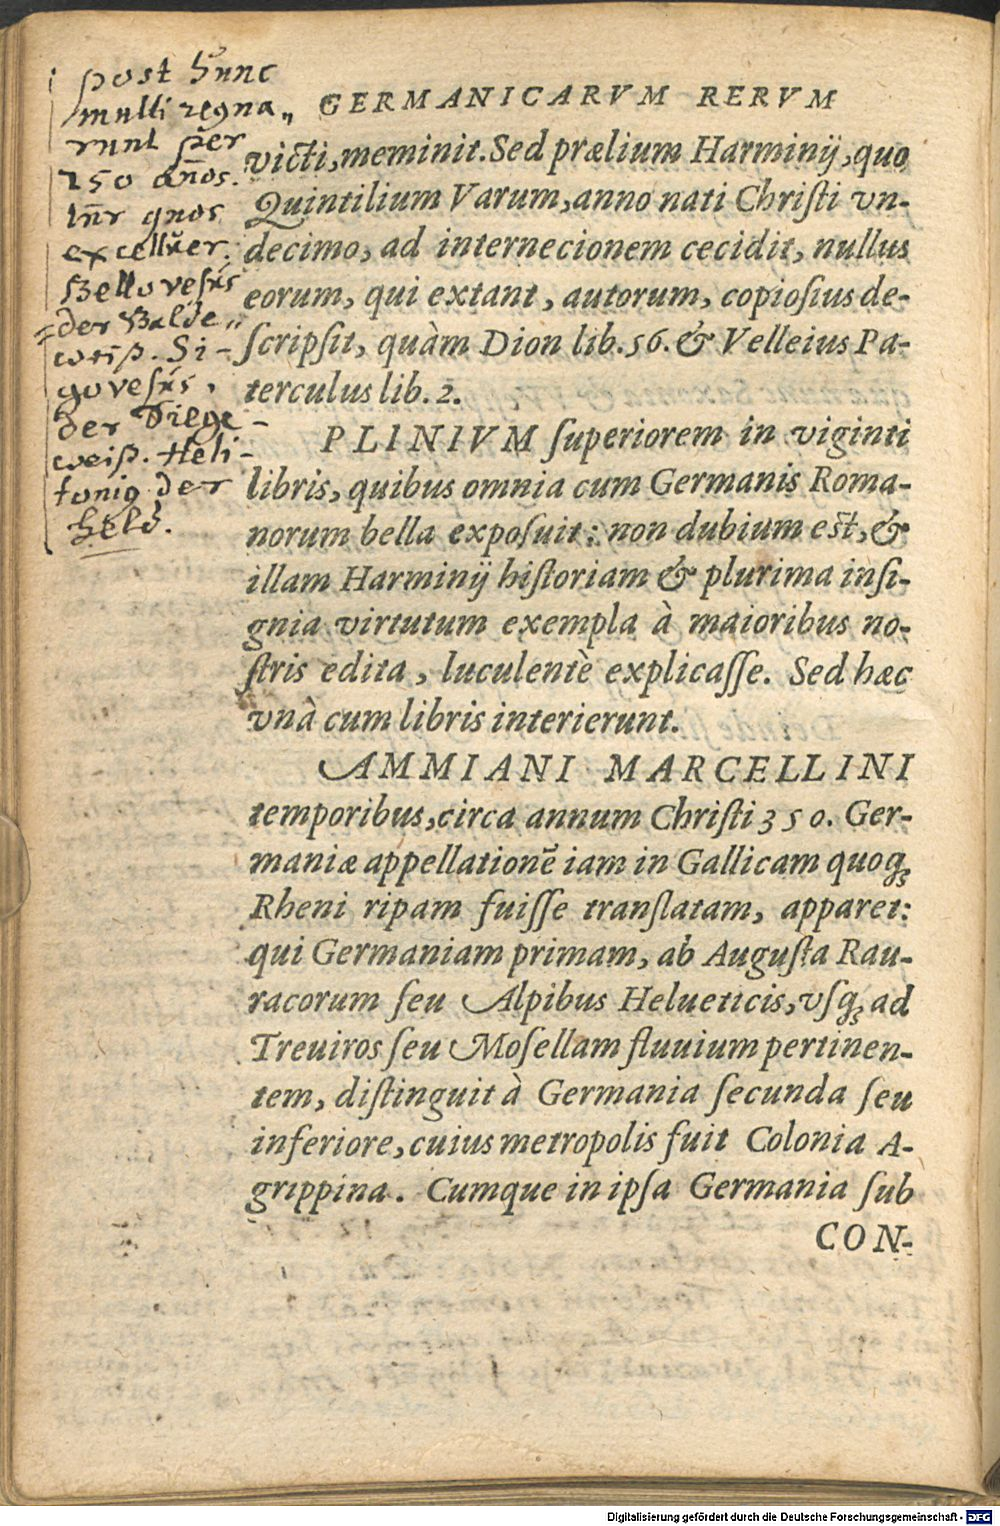 GERMANICARVM RERVM
victi, meminit. Sed prælium Harminij, quo
Quintilium Varum, anno nati Christi vn-
decimo, ad internecionem cecidit, nullus
eorum, qui extant, autorum, copiosius de-
scripsit, quàm Dion lib. 56. & Velleius Pa-
terculus lib. 2.
PLINIVM superiorem in viginti
libris, quibus omnia cum Germanis Roma-
norum bella exposuit: non dubium est, &
illam Harminij historiam & plurima insi-
gnia virtutum exempla à maioribus no-
stris edita, luculentè explicasse. Sed hæc
vnà cum libris interierunt.
AMMIANI MARCELLINI
temporibus, circa annum Christi 350. Ger-
maniæ appellationē iam in Gallicam quoq;
Rheni ripam fuisse translatam, apparet:
qui Germaniam primam, ab Augusta Rau-
racorum seu Alpibus Helueticis, vsq; ad
Treuiros seu Mosellam fluuium pertinen-
tem, distinguit à Germania secunda seu
inferiore, cuius metropolis fuit Colonia A-
grippina. Cumque in ipsa Germania sub
CON-
post hunc
multi regna„
runt per
250 an̄os.
In̄r quos
excelluer.
Bellovesus
der Balde„
weiß. Si-
govesus.
der Siege-
weiß. Heli-
tonig der
held.
Digitalisierung gefördert durch die Deutsche Forschungsgemeinschaft - DFG